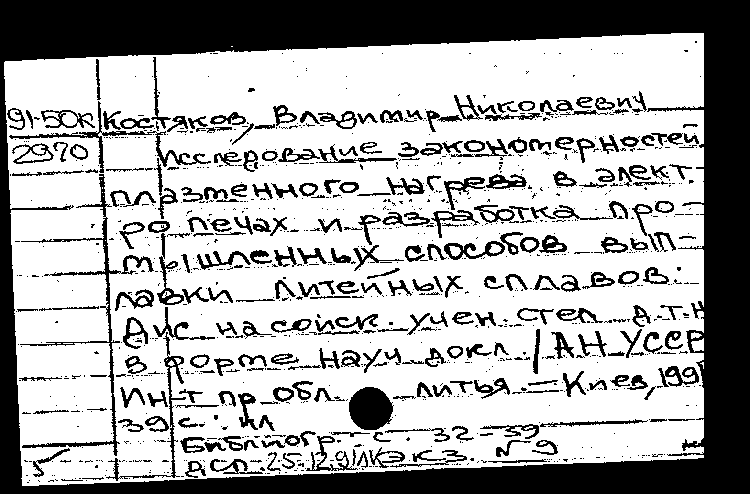 91-50к Костяков, Владимир Николаевич
2970 Исследование закономерностей
плазменного нагрева в элект
ро печах и разработка про-
мышленных способов вып-
лавки литейных сплавов:
Дис на соиск. учен. степ д.т.н
в форме науч докл. / АН УССР
Ин-т пр обл литья. — Киев, 1991
39 с. : ил
Библиогр.: с. 32-39
ДСП. 25.12.91 экз. N 9